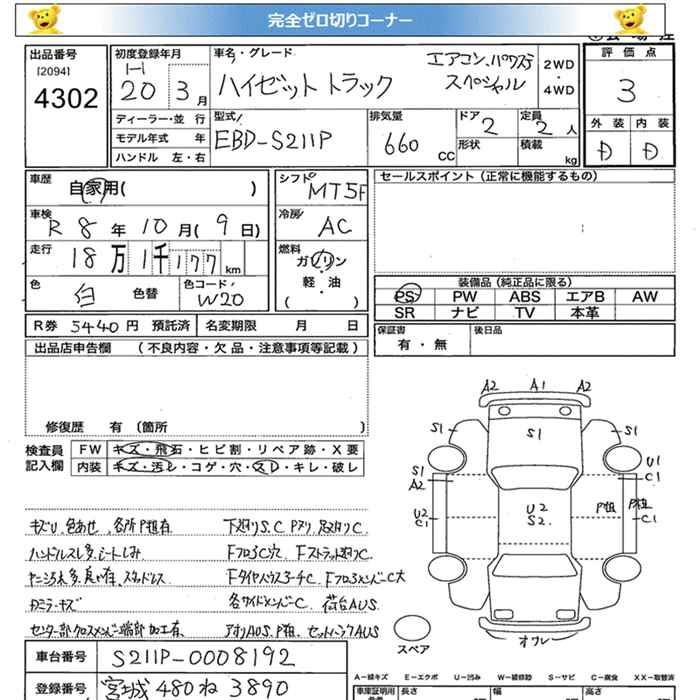 完全ゼロ切りコーナー
出品番号 [2094] 4302
初度登録年月 H 20 3月
車名・グレード ハイゼット トラック エアコン、パワステ スペシャル
2WD ・ 4WD
評価点 3
ディーラー・並 行
モデル年式 年
ハンドル 左・右
型式 EBD-S211P
排気量 660 CC
ドア 2
形状
定員 2 人
積載 kg
外装 内装
D D
車歴 自家用( )
シフト MT5F
セールスポイント (正常に機能するもの)
車検 R 8 年 10 月( 9 日)
冷房 AC
走行 18 万 1 千 177 km
燃料 ガソリン ・ 軽・油 ( )
色 白 色替
色コード W20
装備品 (純正品に限る)
PS PW ABS エアB AW
SR ナビ TV 本革
R券 5440 円 預託済 名変期限 月 日
保証書 有・無
後日品
出品店申告欄 (不良内容・欠品・注意事項等記載)
修復歴 有 (箇所 )
検査員記入欄
FW キズ・飛石・ヒビ割・リペア跡・X要
内装 キズ・汚レ・コゲ・穴・スレ・キレ・破レ
A2 A1 A2
S1 S1 S1
S1 A2
U1 C1
U2 C1
U2 S2
P粗 P粗 C1
キズU、色あせ、各所P粗有 下廻りS.C Pヌリ、足廻りC
ハンドルスレ多、シートしみ FフロアC穴 Fストラット廻りC
ヤニシろ木多、臭い有、スタッドレス FタイヤハウスコーチC FフロアメンバーC大
Rミラーキズ 各サイドメンバーC 荷台AUS
センター部クロスメンバー端部加工有 アオリAUS、P粗、セットバックAUS
オワレー
スペア
車台番号 S211P-0008192
登録番号 宮城 480 ね 3890
A-線キズ E-エクボ U-凹み W-補修跡 S-サビ C-腐食 XX-取替済
車庫証明用 長さ 幅 高さ